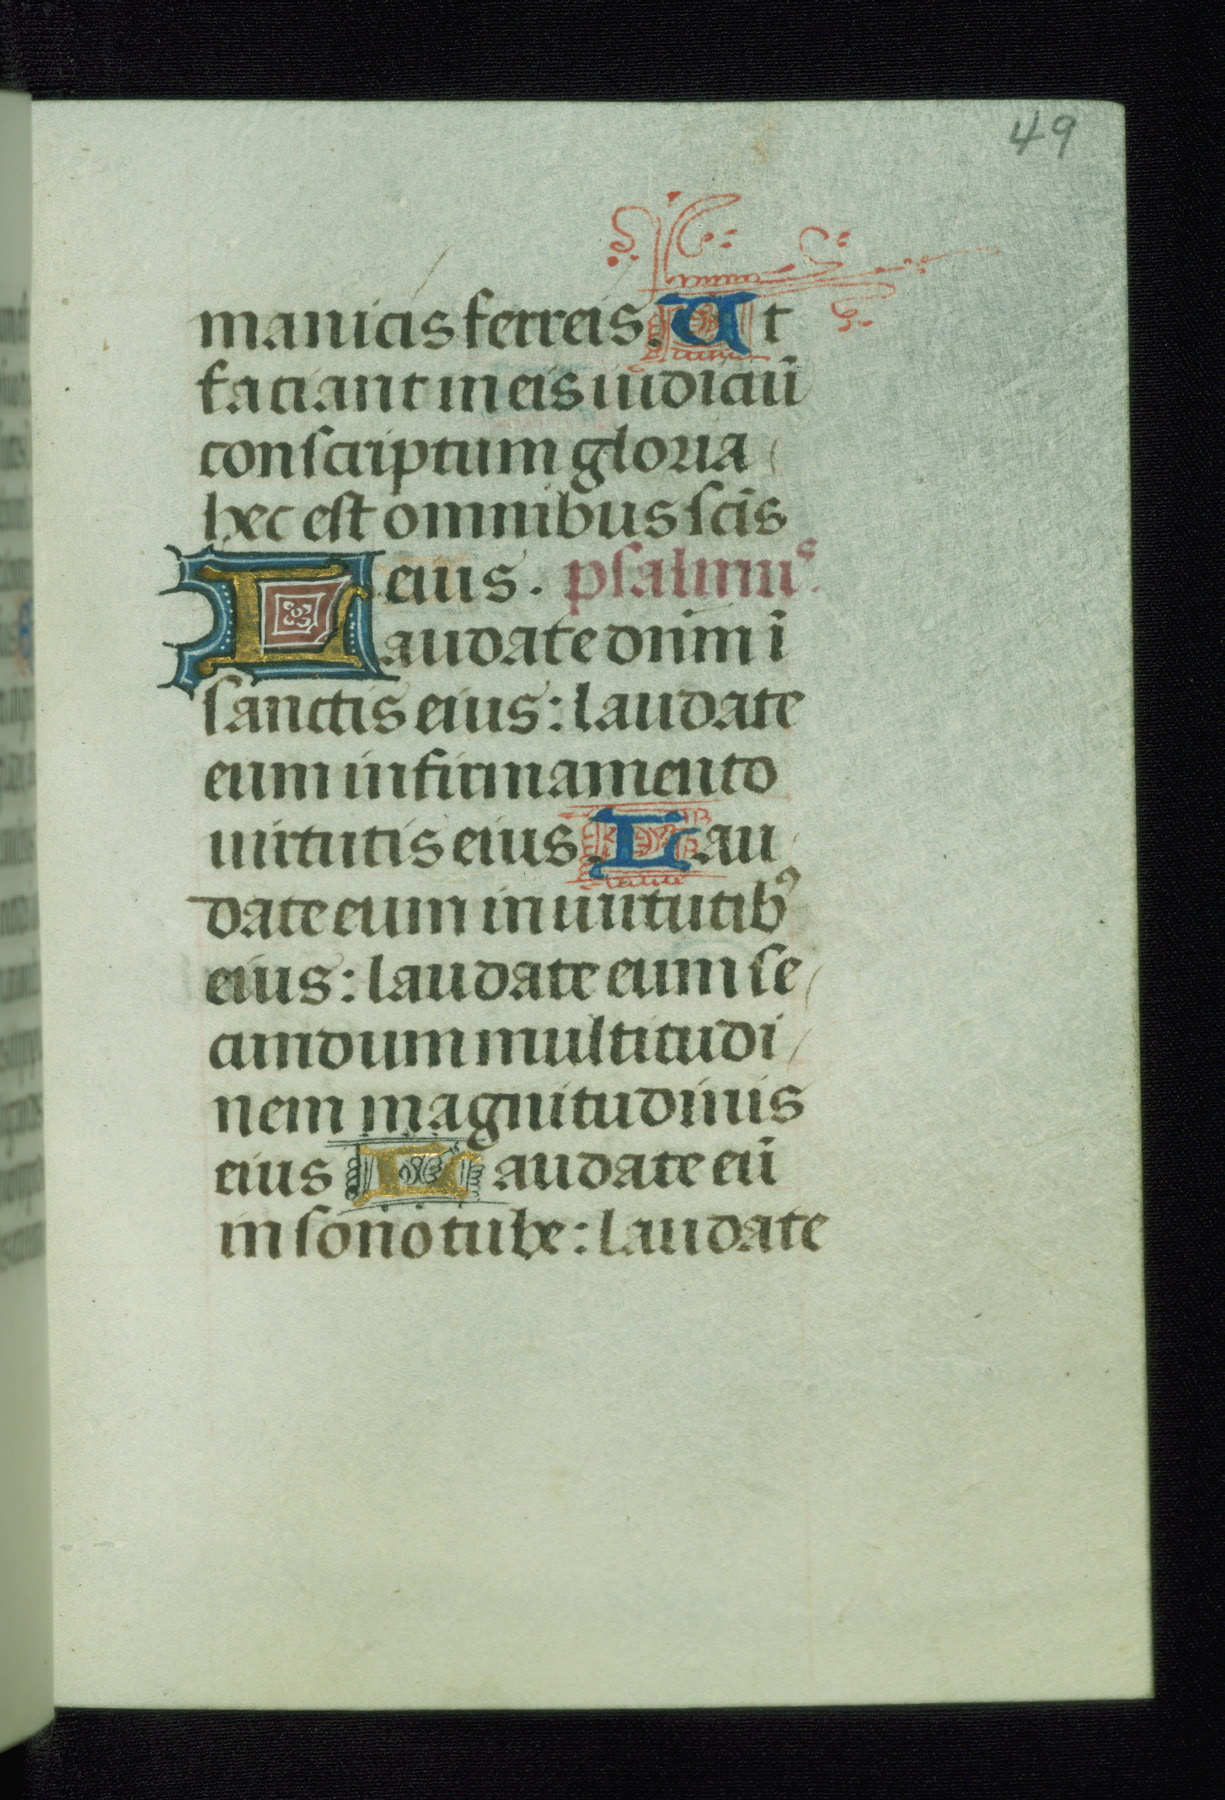 49
manicis ferreis. Ut
faciant in eis iudiciū
conscriptum gloria
hec est omnibus scīs
eius. psalmus.
Laudate dnm̄ ī
sanctis eius: laudate
eum in firmamento
uirtutis eius. Lau
date eum in uirtutibꝰ
eius: laudate eum se
cundum multitudi
nem magnitudinis
eius Laudate eū
in sono tube: laudate